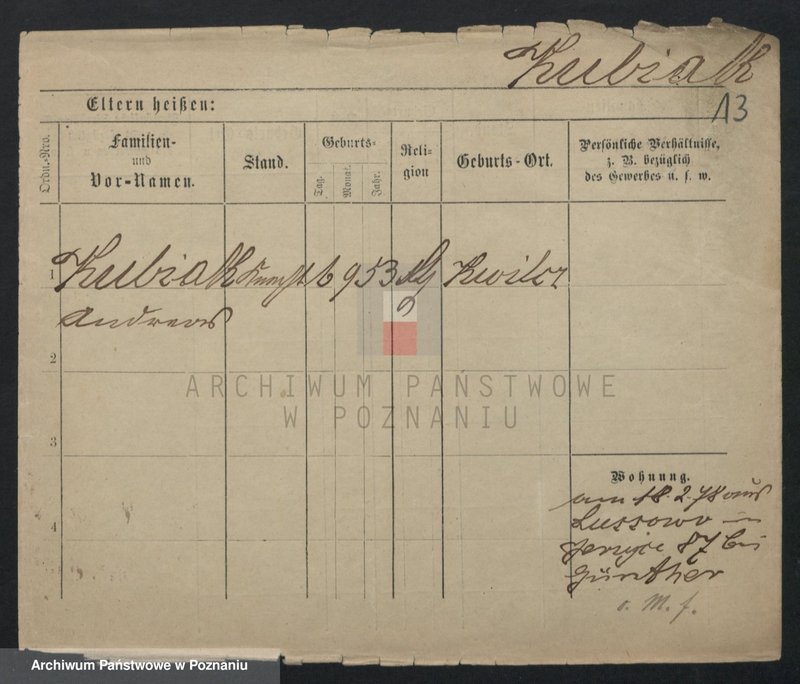 Kubiak
13
Eltern heißen:
Ordn.-Nro.
Familien-
und
Vor-Namen.
Stand.
Geburts-
Tag.
Monat.
Jahr.
Reli-
gion
Geburts-Ort.
Persönliche Verhältnisse,
z. B. bezüglich
des Gewerbes u. s. w.
1 Kubiak 6 9 53 Kwilcz
Andreas
2
ARCHIWUM PAŃSTWOWE
W POZNANIU
3
Wohnung.
am 18.2.78 aus
Lussowo in
4
Jersyce 87 bei
Günther
v. M. f.
Archiwum Państwowe w Poznaniu